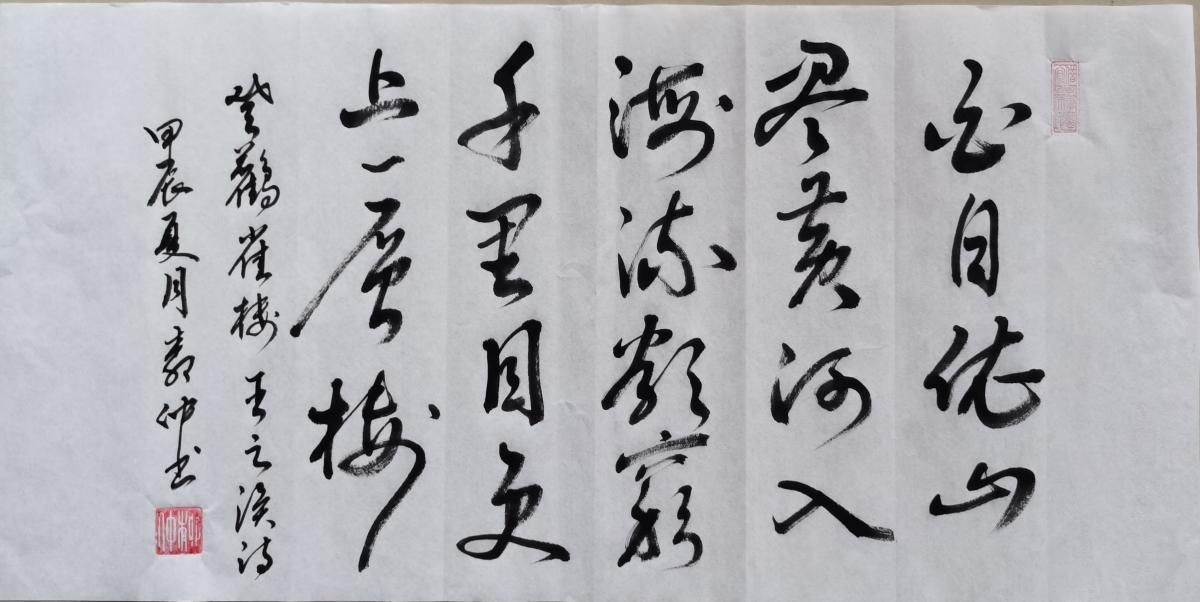 白日依山
尽黄河入
海流欲穷
千里目更
上一层楼
登鹳雀楼 王之涣诗
甲辰夏月 仲书